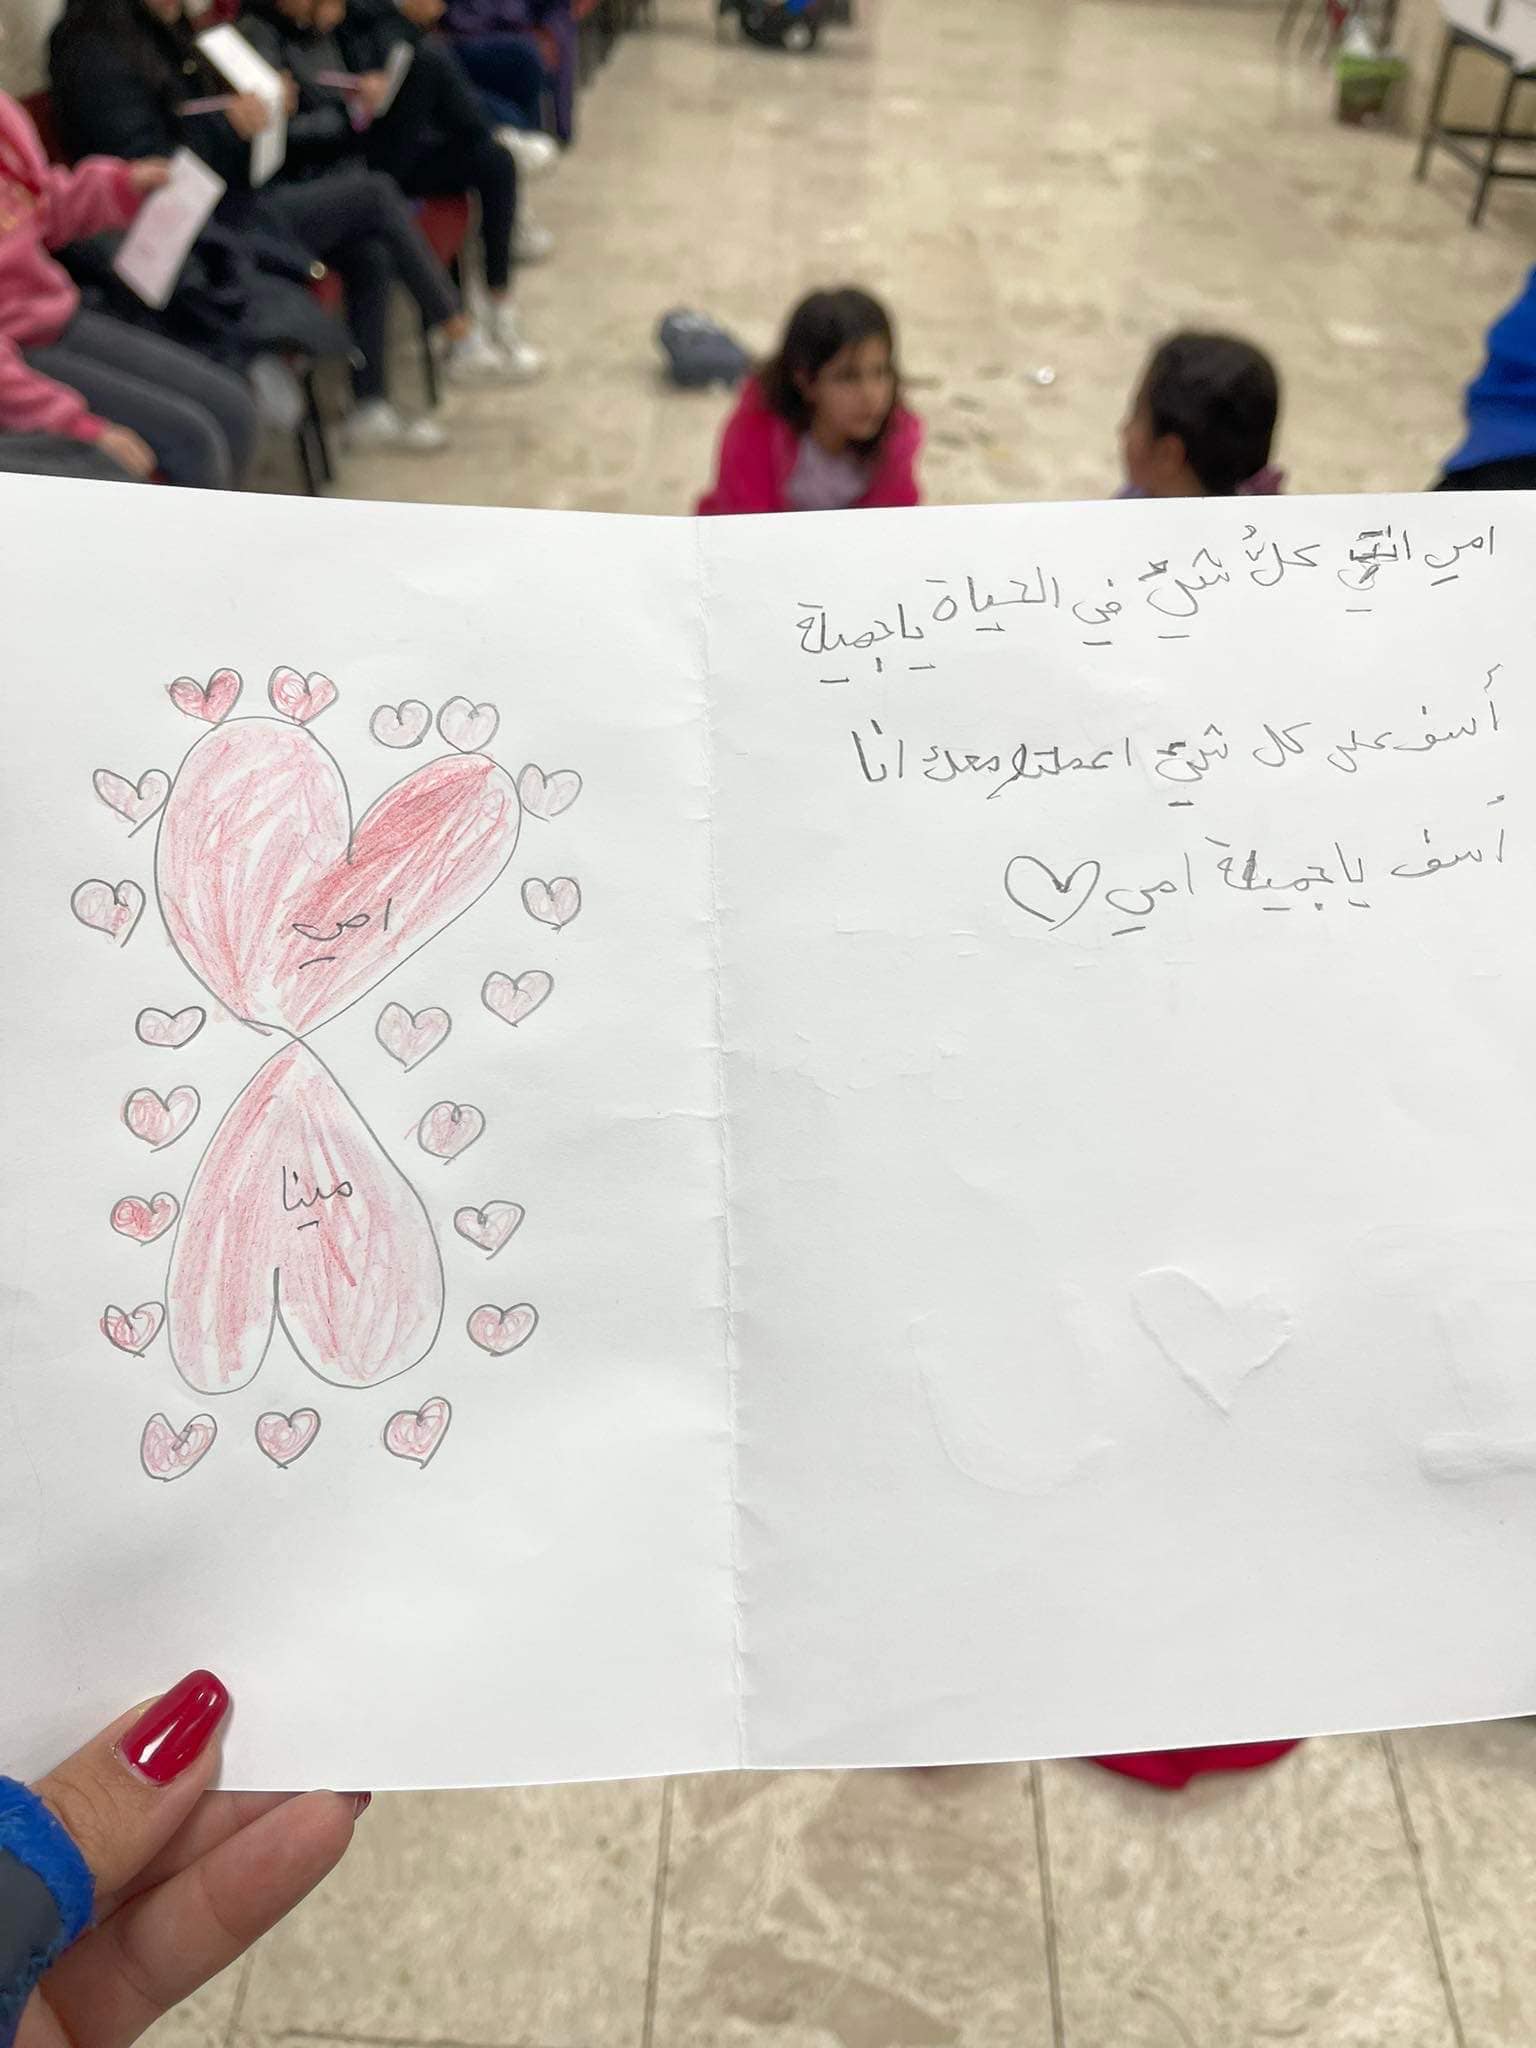 امي انتي كلُّ شيءٍ في الحياة يا جميلة
أسف على كل شيءٍ اعملتو معك انا
أسف يا جميلة امي
امي
مينا